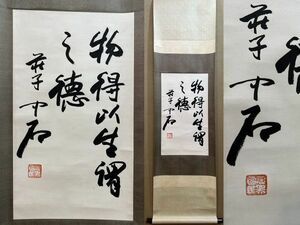 物得以生謂
之德
莊子 中石
物得以生謂
之德
莊子 中石
石